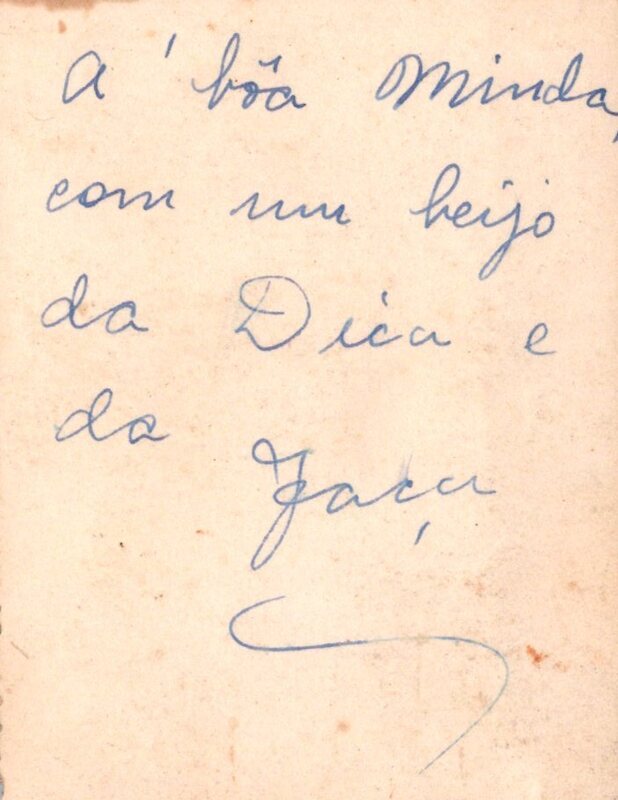 A' bôa Minda,
com um beijo
da Dica e
da
Jaça